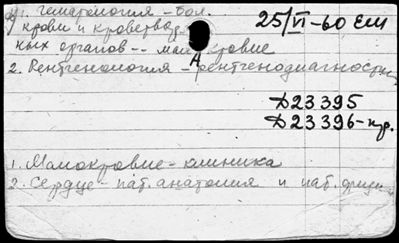 1. Гематология – бол.
крови и кроветвор-
25/VI-60 Еш
ных органов -- малокровие
А
2. Рентгенология – рентгенодиагностик
Д23395
Д23396-кр.
1. Малокровие – клиника
2. Сердце – пат. анатомия и пат. физи